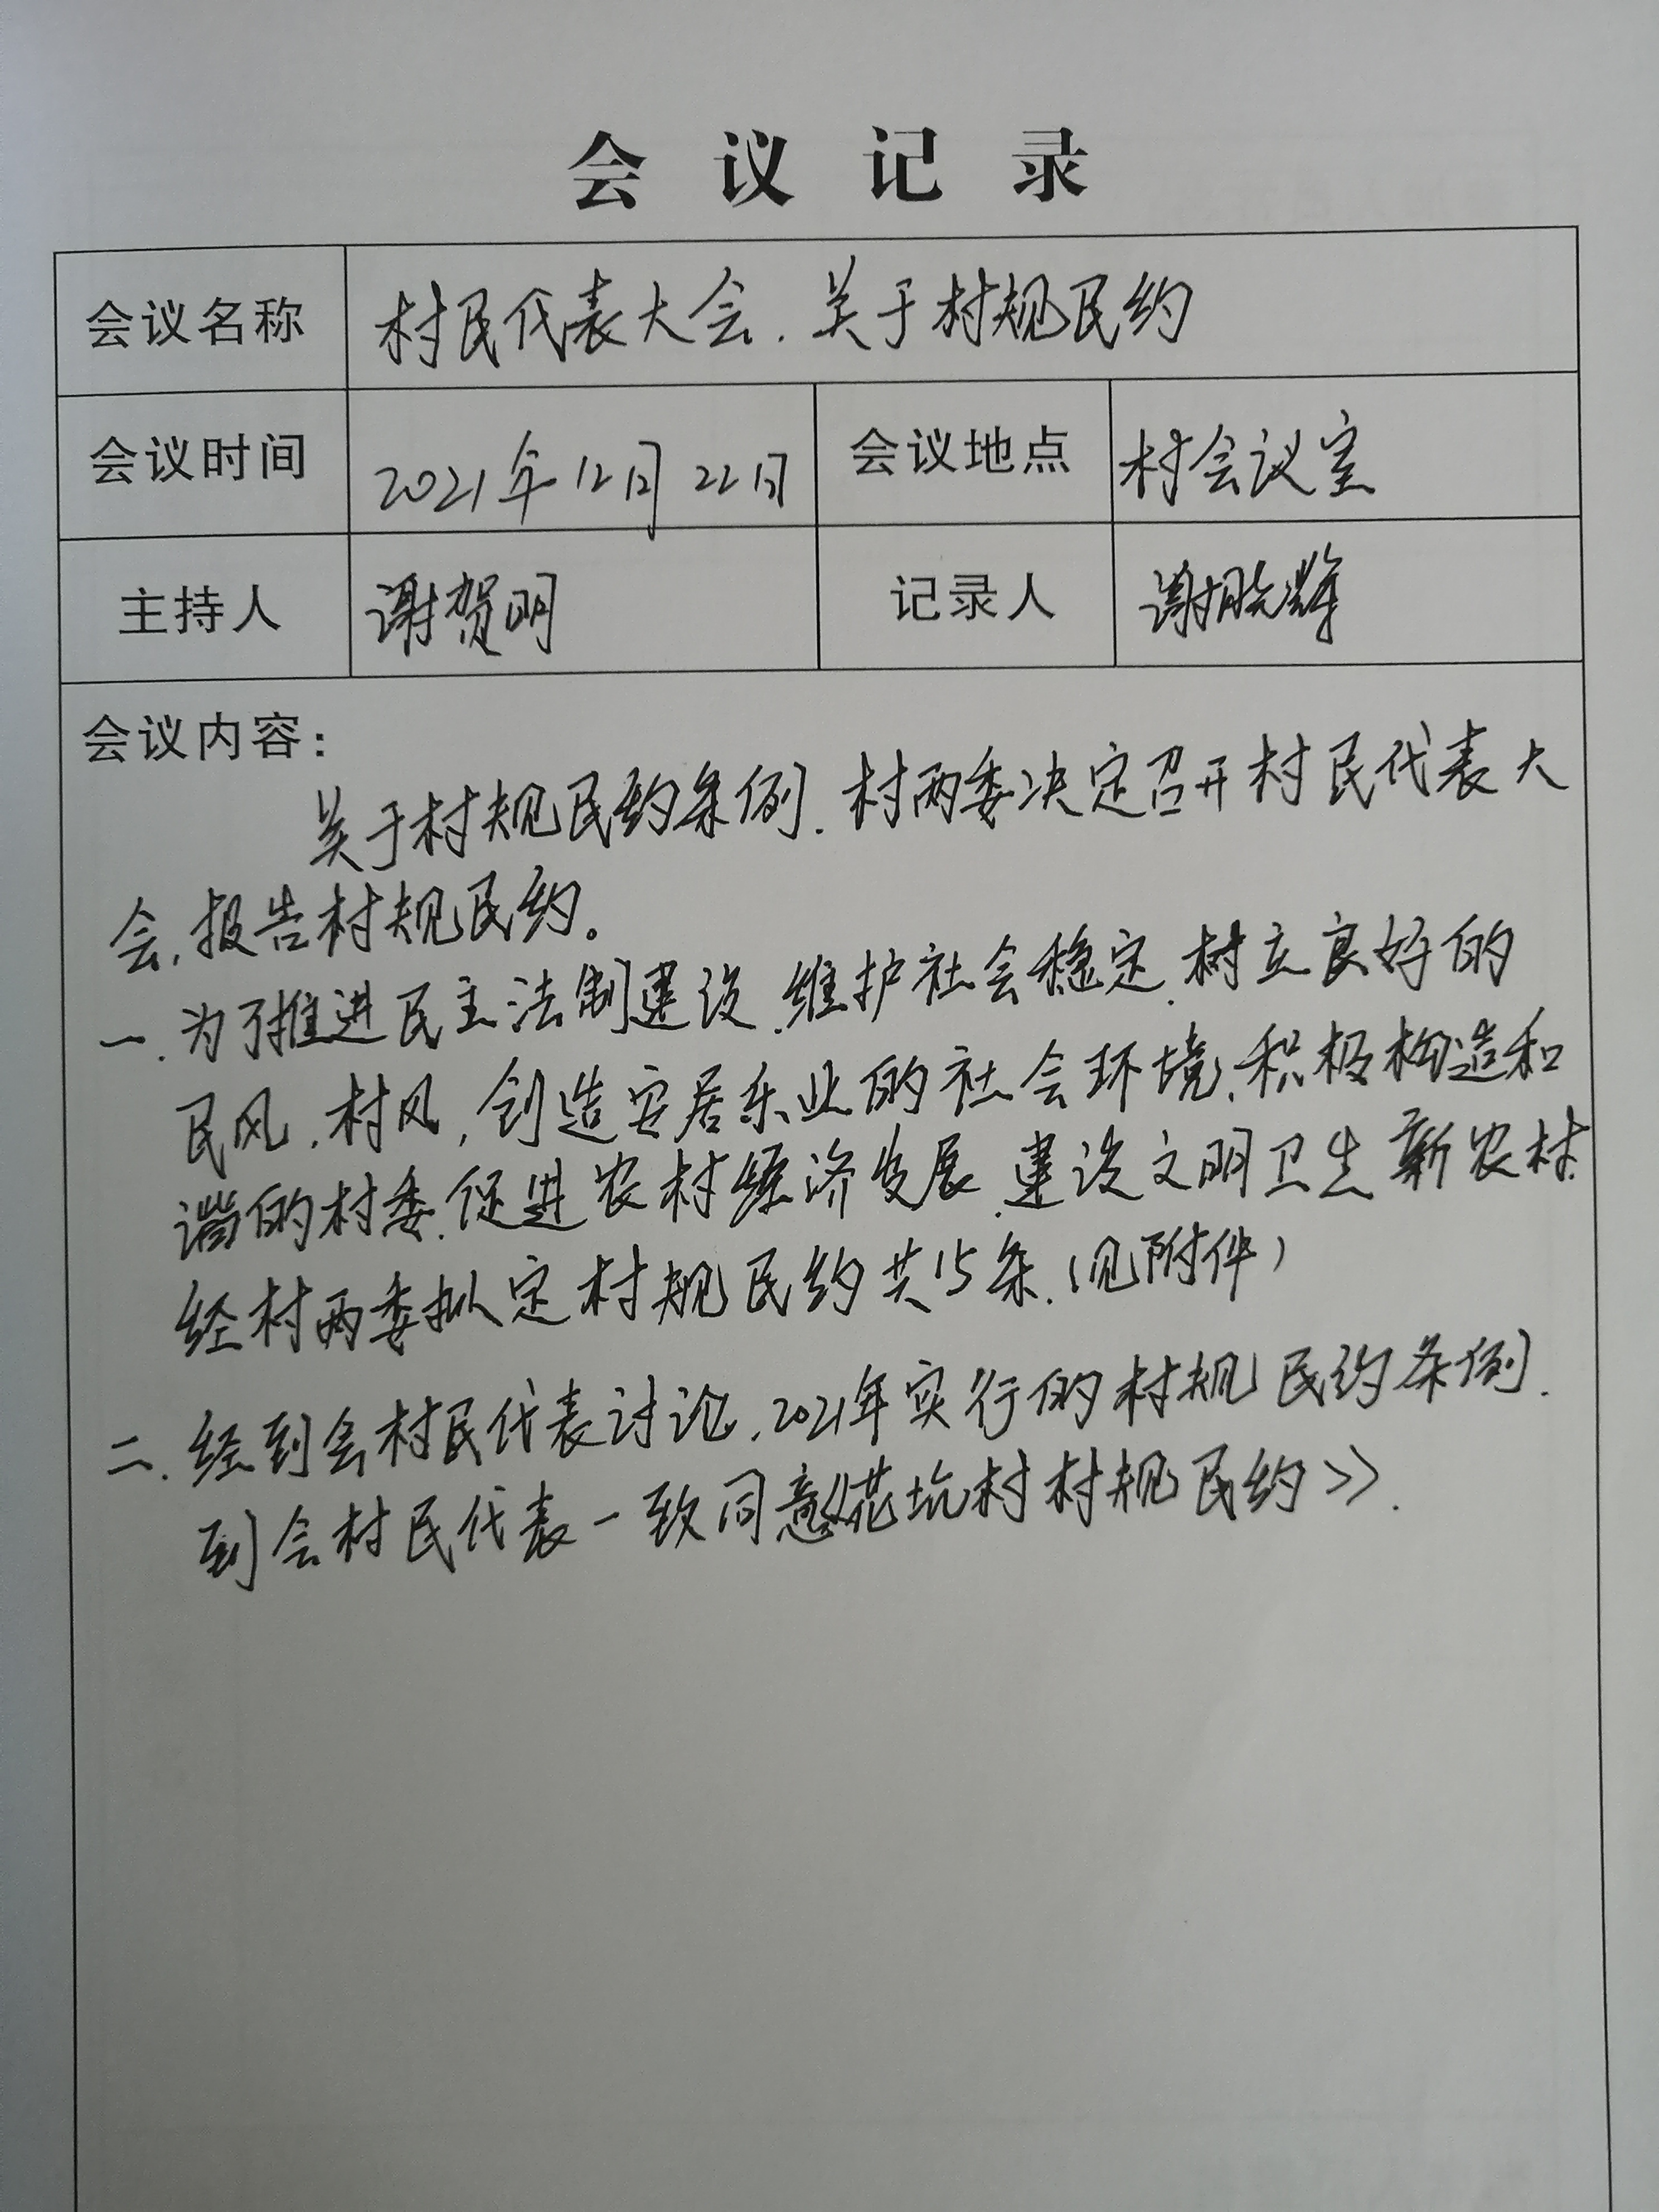 会议记录
会议名称 村民代表大会.关于村规民约
会议时间 2021年12月22日 会议地点 村会议室
主持人 谢贺明 记录人 谢晓辉
会议内容：
关于村规民约条例.村两委决定召开村民代表大
会,报告村规民约。
一.为了推进民主法制建设.维护社会稳定.树立良好的
民风.村风,创造安居乐业的社会环境.积极构造和
谐的村委.促进农村经济发展.建设文明卫生新农村.
经村两委拟定村规民约共15条.(见附件)
二.经到会村民代表讨论.2021年实行的村规民约条例.
到会村民代表一致同意《花坑村村规民约》.